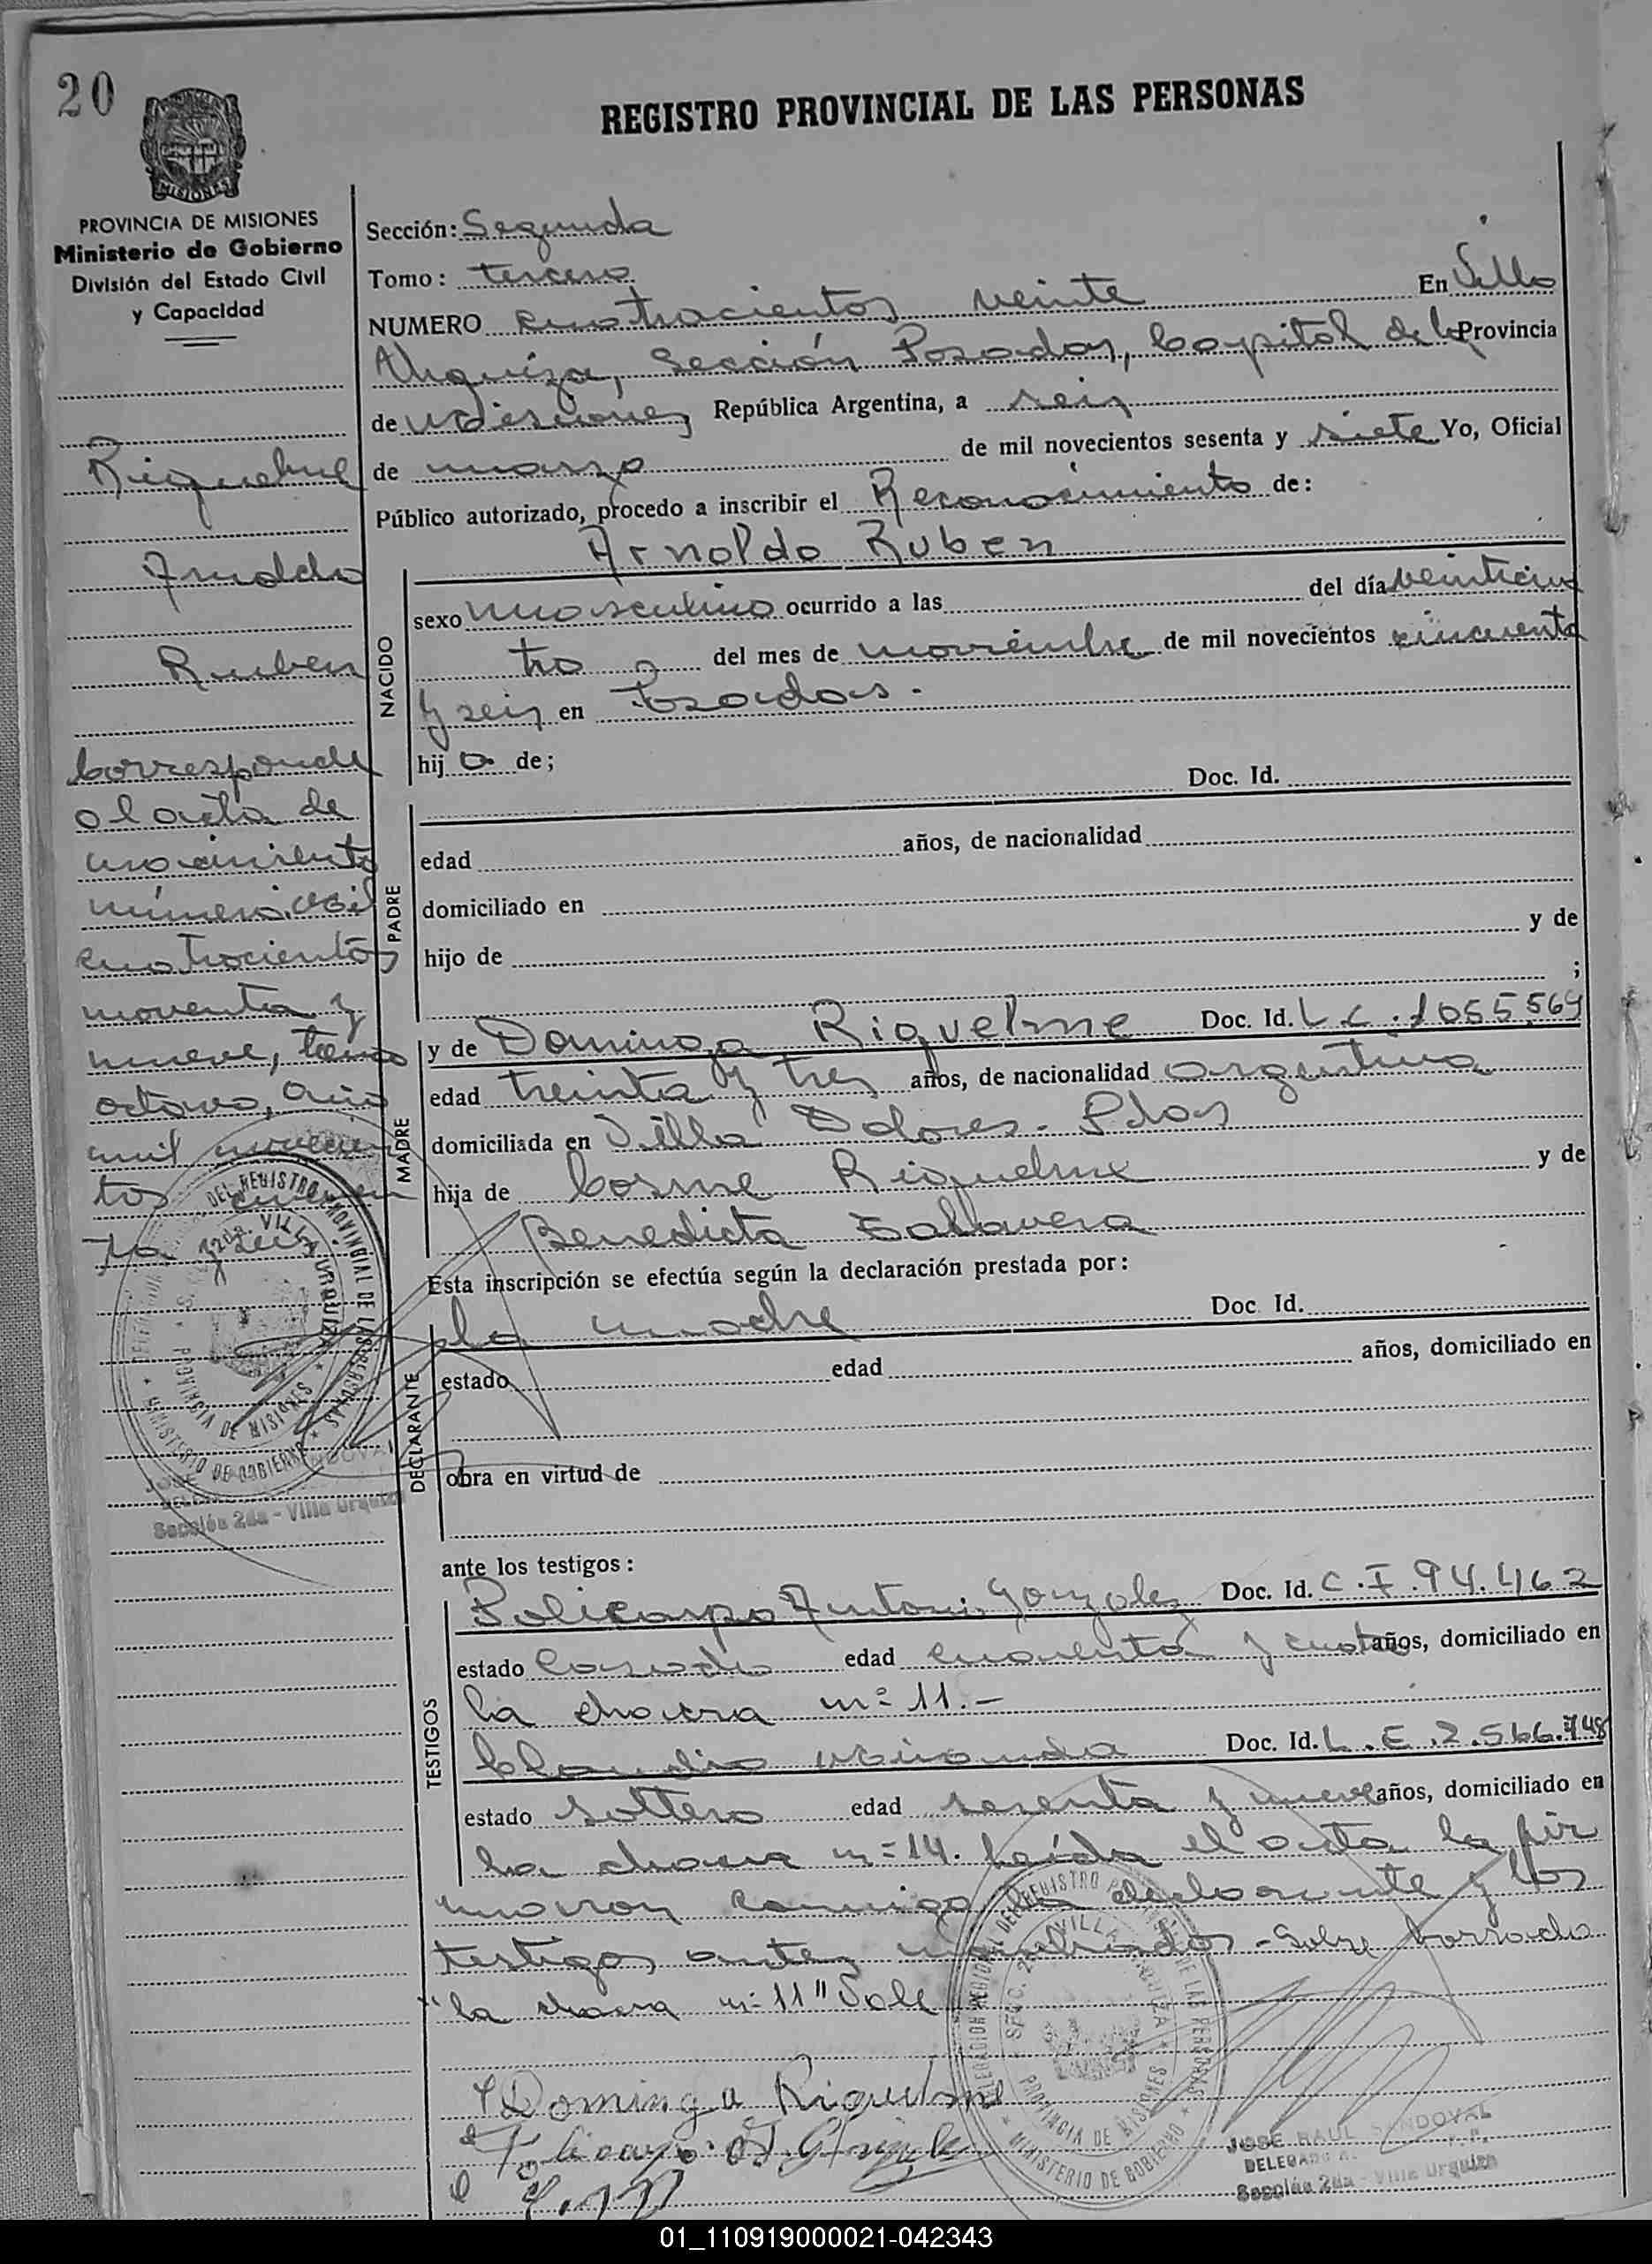 20
REGISTRO PROVINCIAL DE LAS PERSONAS
MISIONES
PROVINCIA DE MISIONES
Ministerio de Gobierno
División del Estado Civil
y Capacidad
Riquelme
Arnoldo
Ruben
Corresponde
al acta de
nacimiento
número mil
cuatrocientos
noventa y
nueve, tomo
octavo, año
mil novecien
tos cincuen
ta y seis
Sección: Segunda
Tomo: tercero
NUMERO cuatrocientos veinte En Villa
Urquiza, Sección Posadas, Capital de la Provincia
de Misiones República Argentina, a seis
de marzo de mil novecientos sesenta y siete Yo, Oficial
Público autorizado, procedo a inscribir el Reconocimiento de:
Arnoldo Ruben
NACIDO
sexo masculino ocurrido a las del día veinticua
tro del mes de noviembre de mil novecientos cincuenta
y seis en Posadas.
hij o de;
PADRE
Doc. Id.
edad años, de nacionalidad
domiciliado en
hijo de y de
;
MADRE
y de Dominga Riquelme Doc. Id. L.C. 1055.569
edad treinta y tres años, de nacionalidad argentina
domiciliada en Villa Dolores - Pdas
hija de Cosme Riquelme y de
Benedicta Talavera
Esta inscripción se efectúa según la declaración prestada por:
DECLARANTE
la madre Doc Id.
estado edad años, domiciliado en
obra en virtud de
ante los testigos:
TESTIGOS
Policarpo Antonio Gonzalez Doc. Id. C.I. 94.462
estado Casado edad cuarenta y cuatro años, domiciliado en
la chacra nº 11.-
Claudio Miranda Doc. Id. L.E. 2.566.748
estado soltero edad sesenta y nueve años, domiciliado en
la chacra nº 14. Leída el acta la fir
maron conmigo la declarante y los
testigos antes nombrados - Sobre borrado
"la chacra nº 11" Vale
Dominga Riquelme
JOSE RAUL SANDOVAL
Sección 2da - Villa Urquiza
DEL REGISTRO PROVINCIAL DE LAS PERSONAS
VILLA URQUIZA
PROVINCIA DE MISIONES
MINISTERIO DE GOBIERNO
Sección 2da - Villa Urquiza
01_110919000021-042343